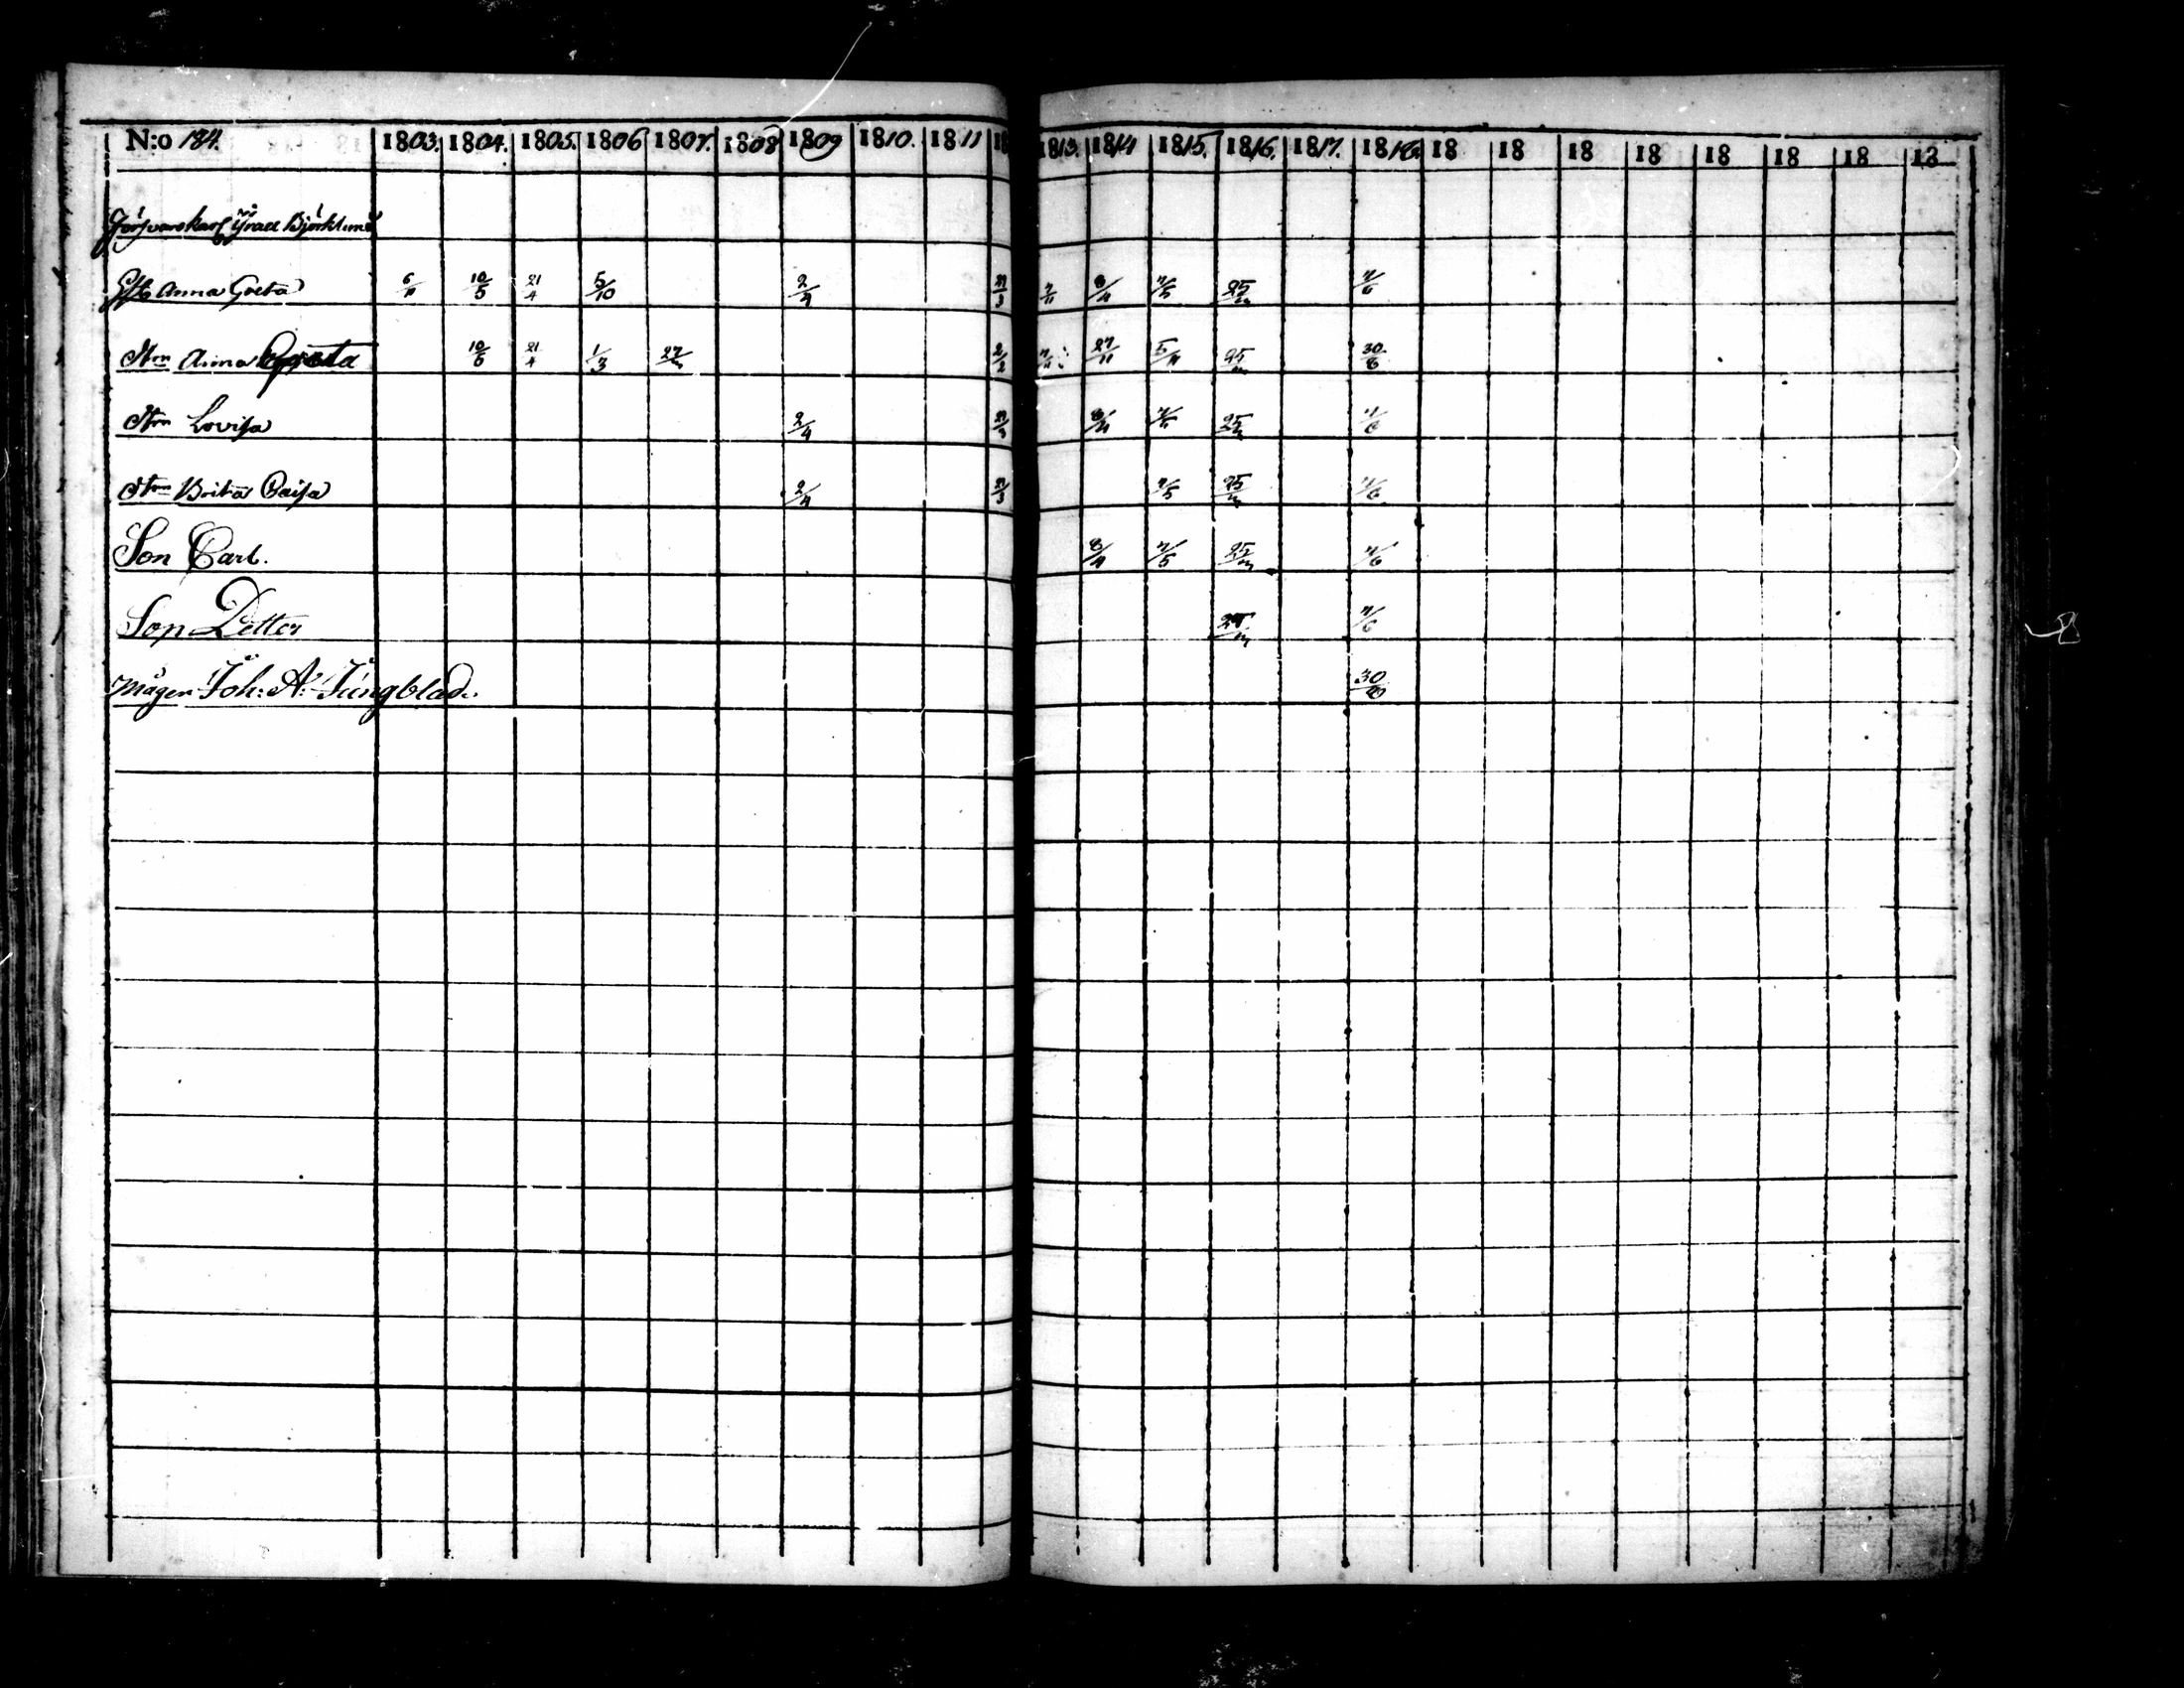 N:o 184. 1803. 1804. 1805. 1806 1807. 1808 1809 1810. 1811 18 1813. 1814 1815. 1816. 1817. 1818. 18 18 18 18 18 18 18 18
Försvarskarl Israel Björklund
Anna Greta 6/11 10/5 21/4 5/10 2/4 21/3 7/11 8/11 7/5 25/m 7/6
Anna Greta 10/5 21/4 1/3 27/m 2/2 27/11 5/11 25/m 30/6
Lovisa 2/4 21/3 8/11 7/5 25/m 7/6
Brita Caisa 2/4 21/3 7/5 25/m 7/6
Son Carl. 8/11 7/5 25/m 7/6
Son Petter 25/m 7/6
Mågen Joh: A: Ljungblad. 30/6